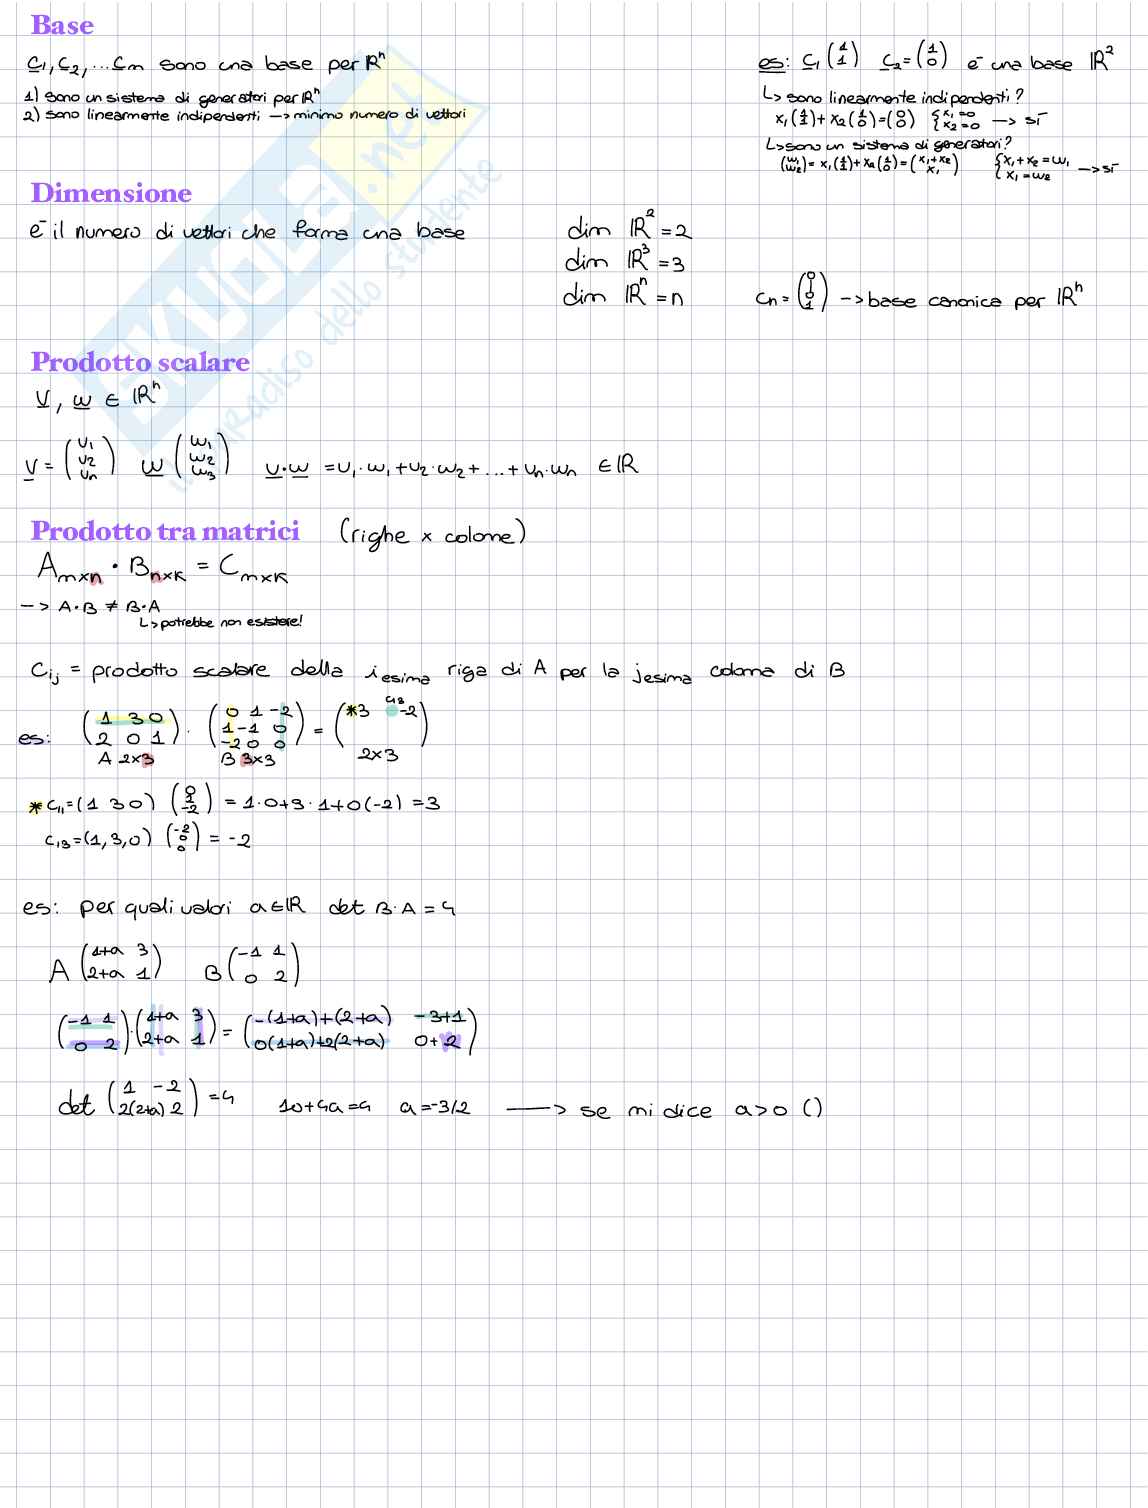 Base
c1, c2, ... cm sono una base per ℝⁿ
1) sono un sistema di generatori per ℝⁿ
2) sono linearmente indipendenti —> minimo numero di vettori
es: c1 (1 1) c2 = (1 0) è una base ℝ²
↳ sono linearmente indipendenti?
x1 (1 1) + x2 (1 0) = (0 0) { x1 = 0 x2 = 0 —> sì
↳ sono un sistema di generatori?
(w1 w2) = x1 (1 1) + x2 (1 0) = (x1+x2 x1) { x1 + x2 = w1 x1 = w2 —> sì
Dimensione
è il numero di vettori che forma una base
dim ℝ² = 2
dim ℝ³ = 3
dim ℝⁿ = n
cn = (0 0 1) —> base canonica per ℝⁿ
Prodotto scalare
v, w ∈ ℝⁿ
v = (v1 v2 vn) w (w1 w2 w3) v·w = v1·w1 + v2·w2 + ... + vn·wn ∈ ℝ
Prodotto tra matrici (righe x colonne)
Amxn · Bnxk = Cmxk
—> A·B ≠ B·A
↳ potrebbe non esistere!
Cij = prodotto scalare della iesima riga di A per la jesima colonna di B
es: (1 3 0 / 2 0 1) · (0 1 -2 / 1 -1 0 / -2 0 0) = (*3 -2)
c13
A 2x3 B 3x3 2x3
* c11 = (1 3 0) (0 1 -2) = 1·0+3·1+0(-2) = 3
c13 = (1, 3, 0) (-2 0 0) = -2
es: per quali valori a∈ℝ det B·A = 4
A (1+a 3 / 2+a 1) B (-1 1 / 0 2)
(-1 1 / 0 2) · (1+a 3 / 2+a 1) = (-(1+a)+(2+a) -3+1 / 0(1+a)+2(2+a) 0+2)
det (1 -2 / 2(2+a) 2) = 4 10+4a=4 a=-3/2 —> se mi dice a>0 ()
SKUOLA.net
il paradiso dello studente